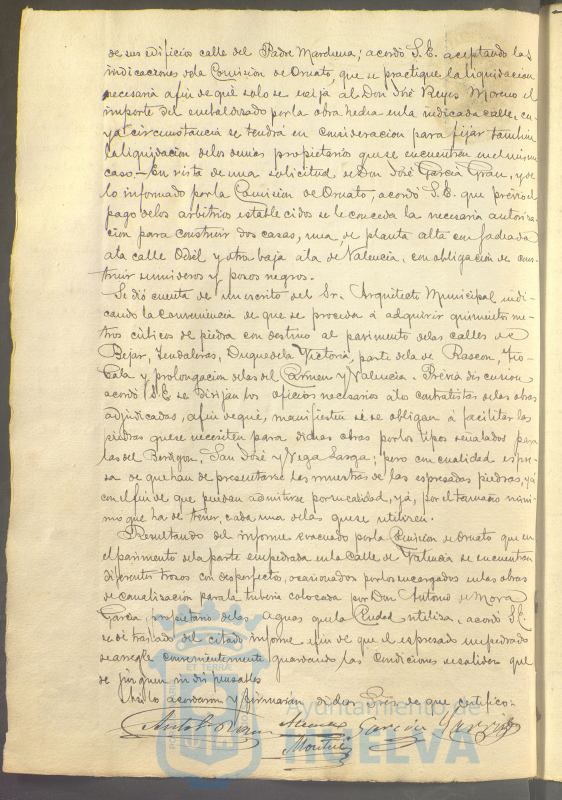 de sus edificios calle del Padre Marchena; acordó S.E. aceptando las
indicaciones dela Comision de Ornato, que se practique la liquidacion
necesaria afin de que solo se exija al Don José Reyes Moreno el
importe del embaldosado por la obra hecha en la indicada calle, cu-
ya circunstancia se tendrá en consideracion para fijar tambien
la liquidacion delos demas propietarios que se encuentren en el mismo
caso.— En vista de una solicitud de Don José Garcia Grau, y de
lo informado por la Comision de Ornato, acordó S.E. que prévio el
pago delos arbitrios establecidos se le conceda la necesaria autoriza-
cion para construir dos casas, una, de planta alta con fachada
ala calle Odiel y otra baja ala de Valencia, con obligacion de cons-
truir sumideros y pozos negros.
Se dió cuenta de un escrito del Sr. Arquitecto Municipal indi-
cando la conveniencia de que se proceda á adquirir quinientos me-
tros cúbicos de piedra con destino al pavimento delas calles de
Bejar, Tendaleras, Duque dela Victoria, parte dela de Rascon,
y prolongacion delas del Carmen y Valencia. Prévia discusion
acordó S.E. se dirijan los oficios necesarios alos contratistas delas obras
adjudicadas, afin de que, manifiesten si se obligan á facilitar las
piedras que se necesiten para dichas obras por los tipos señalados para
las del Berdigon, San José y Vega Larga; pero con cualidad espre-
sa de que han de presentarse las muestras de las espresadas piedras, yá
con el fin de que puedan admitirse por su calidad, yá, por el tamaño míni-
mo que ha de tener, cada una delas que se utilicen.
Resultando del informe evacuado por la Comision de Ornato que en
el pavimento dela parte empedrada en la calle de Valencia se encuentran
diferentes trozos con desperfectos, ocasionados por los encargados en las obras
de canalizacion para la tuberia colocada por Don Antonio de Mora
Garcia, propietario delas Aguas que la Ciudad utiliza, acordó S.E.
se dé traslado del citado informe afin de que el espresado empedrado
se arregle convenientemente guardando las condiciones de solidez que
se juzguen indispensables
Asi lo acordaron y firmarán dichos Sres de que certifico.
Garcia
Ayuntamiento de
HUELVA